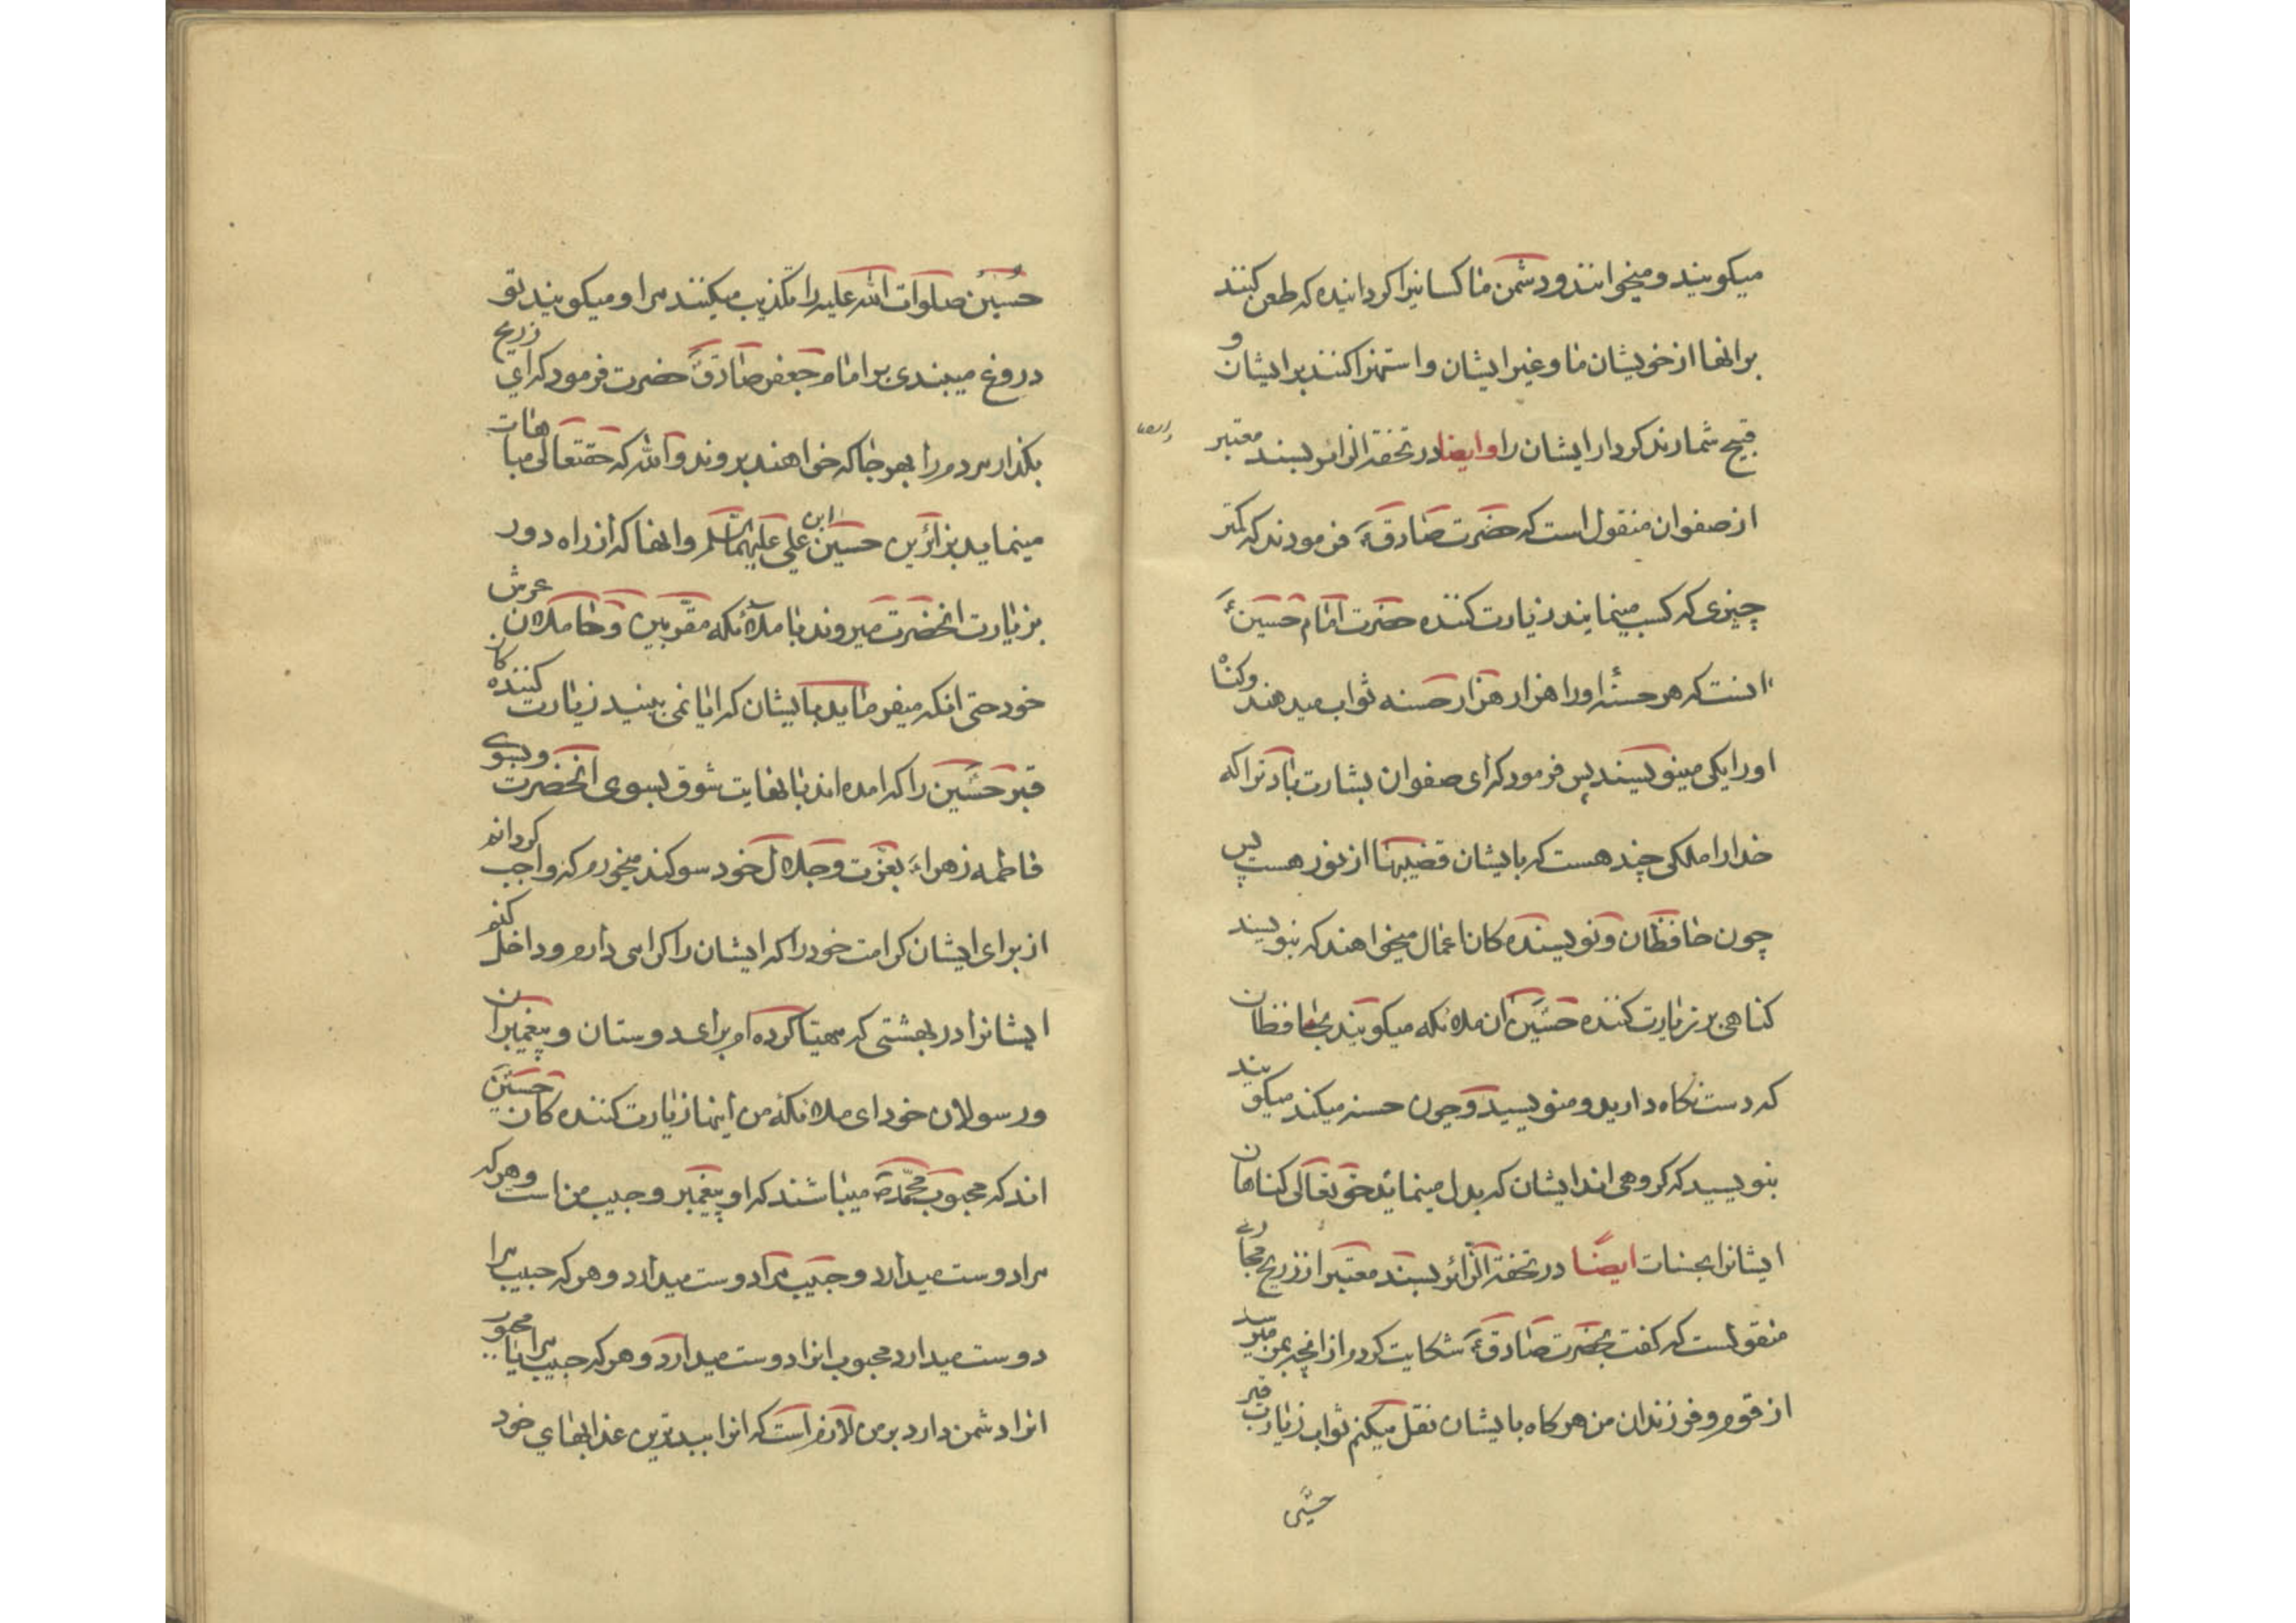 میکویند و میخوانند و دشمن ما کسانیرا کردانیده که طعن کنند
بر انها از خویشان ما و غیر ایشان و استهزا کنند بر ایشان و
قبیح شمارند کردار ایشان را و ایضا در تحفة الزائر بسند معتبر
از صفوان منقول است که حضرت صادق ع فرمودند که کمتر
چیزی که کسب مینمایند زیارت کننده حضرت امام حسین ع
اینست که هر حسنهٔ او را هزار هزار حسنه ثواب میدهند و کناه
او را یکی مینویسند پس فرمود که ای صفوان بشارت باد ترا که
خدا را ملکی چند هست که بایشان قضیبها از نور هست پس
چون حافظان و نویسنده کان اعمال میخواهند که بنویسند
کناهی بر زیارت کننده حسین ع ان ملائکه میکویند بحافظان
که دست نکاه دارید و منویسید و چون حسنه میکند میکویند
بنویسید که کروهی اند ایشان که بدل مینماید حق تعالی کناهان
ایشانرا بحسنات ایضا در تحفة الزائر بسند معتبر از زریح محاربی
منقولست که کفت بحضرت صادق ع شکایت کردم از انچه بمن میرسد
از قوم و فرزندان من هر کاه بایشان نقل میکنم ثواب زیارت قبر
حسین
حسین صلوات الله علیه را تکذیب میکنند مرا و میکویند تو
دروغ میبندی بر امام جعفر صادق ع حضرت فرمود که ای زریح
بکذار مردم را بهر جا که خواهند بروند والله که حقتعالی مباهات
مینماید بزائرین حسین ابن علی علیهما السلم و انها که از راه دور
بزیارت انحضرت میروند با ملائکه مقربین و حاملان عرش
خود حتی انکه میفرماید بایشان که ایا نمی بینید زیارت کننده کان
قبر حسین را که امده اند با نهایت شوق بسوی انحضرت و بسوی
فاطمه زهراء بعزت و جلال خود سوکند میخورم که واجب کردانم
از برای ایشان کرامت خود را که ایشان را کرامی دارم و داخل کنم
ایشانرا در بهشتی که مهیا کرده ام برای دوستان و پیغمبران
و رسولان خود ای ملائکه من اینها زیارت کننده کان حسین
اند که محبوب محمد ص میباشند که او پیغمبر و حبیب من است و هر که
مرا دوست میدارد و حبیب مرا دوست میدارد و هر که حبیب مرا
دوست میدارد محبوب انرا دوست میدارد و هر که حبیب مرا یا محبوب
انرا دشمن دارد بر من لازم است که انرا ببدترین عذابهای خود